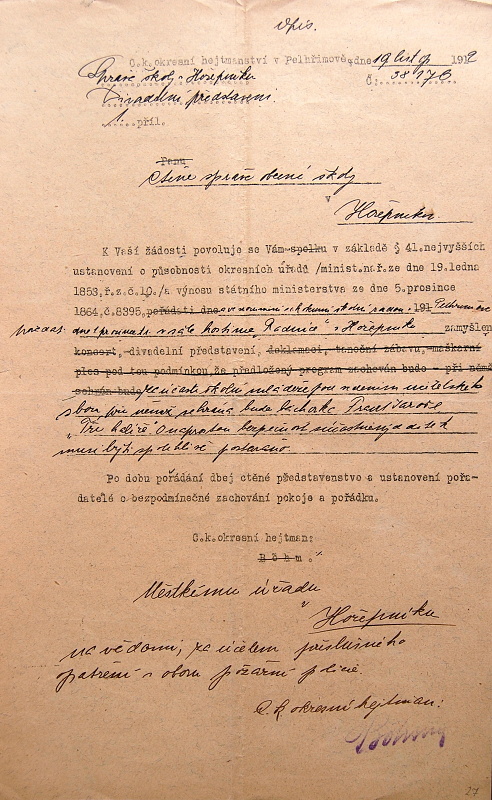 Opis.
C.k.okresní hejtmanství v Pelhřimově, dne 19 list. 1912
Správě školy v Hořepníku Č. 38176
Divadelní představení.
1 příl.
Panu
Ctěné správě obecné školy
v
Hořepníku.
K Vaší žádosti povoluje se Vám spolku v základě § 41.nejvyšších
ustanovení o působnosti okresních úřadů /minist.nař.ze dne 19.ledna
1853,ř.z.č.10./a výnosu státního ministerstva ze dne 5.prosince
1864,č.8395, pořádati dne školní radou 191 Pelhřimově
pořádati v sále hostince "Radnice" v Hořepníku zamýšlené
koncert, divadelní představení, deklamaci, taneční zábavu, maškarní
ples pod tou podmínkou, že předložený program zachován bude při němž
sehrán bude za účasti školní mládeže pod vedením učitelského
sboru při němž sehrána bude báchorka
"Tři haléře" O naprostou bezpečnost
musí býti spolehlivě postaráno.
Po dobu pořádání dbej ctěné představenstvo a ustanovení pořa-
datelé o bezpodmínečné zachování pokoje a pořádku.
C.k.okresní hejtman:
Böhm."
Městskému úřadu
v Hořepníku
na vědomí, za účelem příslušného
opatření v oboru požární policie.
C. k. okresní hejtman:
Böhm
27